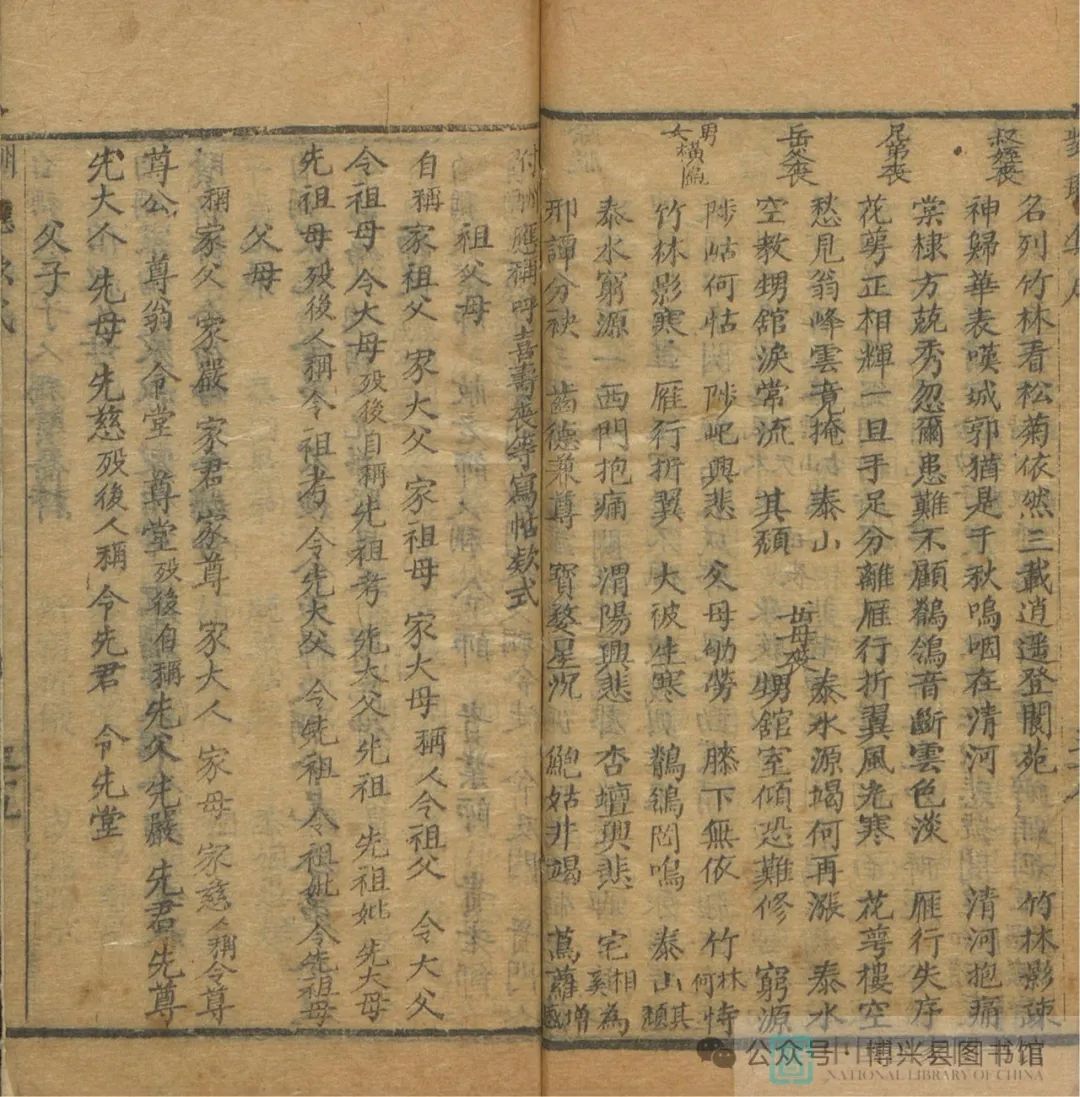 叔姪喪
名列竹林看松菊依然三載逍遥登閬苑 竹林影疎
神歸華表嘆城郭猶是千秋嗚咽在清河 清河抱痛
兄弟喪
棠棣方兢秀忽爾患難不顧鶺鴒音斷雲色淡 雁行失序
花萼正相輝一旦手足分離雁行折翼風光寒 花萼樓空
岳父喪
愁見翁峰雲竟掩 泰山 岳母喪 泰水源竭何再漲 泰水
空教甥舘淚常流 其頽 甥舘室傾恐難修 窮源
男女橫匾
陟岵何怙 陟屺興悲 父母劬勞 膝下無依 竹林何恃
竹林影寒 雁行折翼 大被生寒 鶺鴒罔鳴 泰山其頽
泰水窮源 西門抱痛 渭陽興悲 杏壇興悲 宅相奚為
邢譚分袂 齒德兼尊 寶婺星沉 鮑姑井竭 蔦蘿增
附酬應稱呼喜壽喪等寫帖欵式
祖父母
自稱家祖父 家大父 家祖母 家大母 稱人令祖父 令大父
令祖母 令大母 歿後自稱先祖考 先大父 先祖 先祖妣 先大母
先祖母 歿後人稱令祖考 令先大父 令先祖 令祖妣 令先祖母
父母
稱家父 家嚴 家君 家尊 家大人 家母 家慈 人稱令尊
尊公 尊翁 令堂 尊堂 歿後自稱先父 先嚴 先君 先尊
先大人 先母 先慈 歿後人稱令先君 令先堂
父子
公众号·博兴县图书馆
NATIONAL LIBRARY OF CHINA